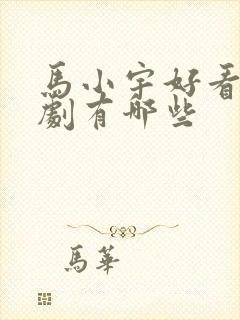 馬小宇好看
劇有哪些
馬華